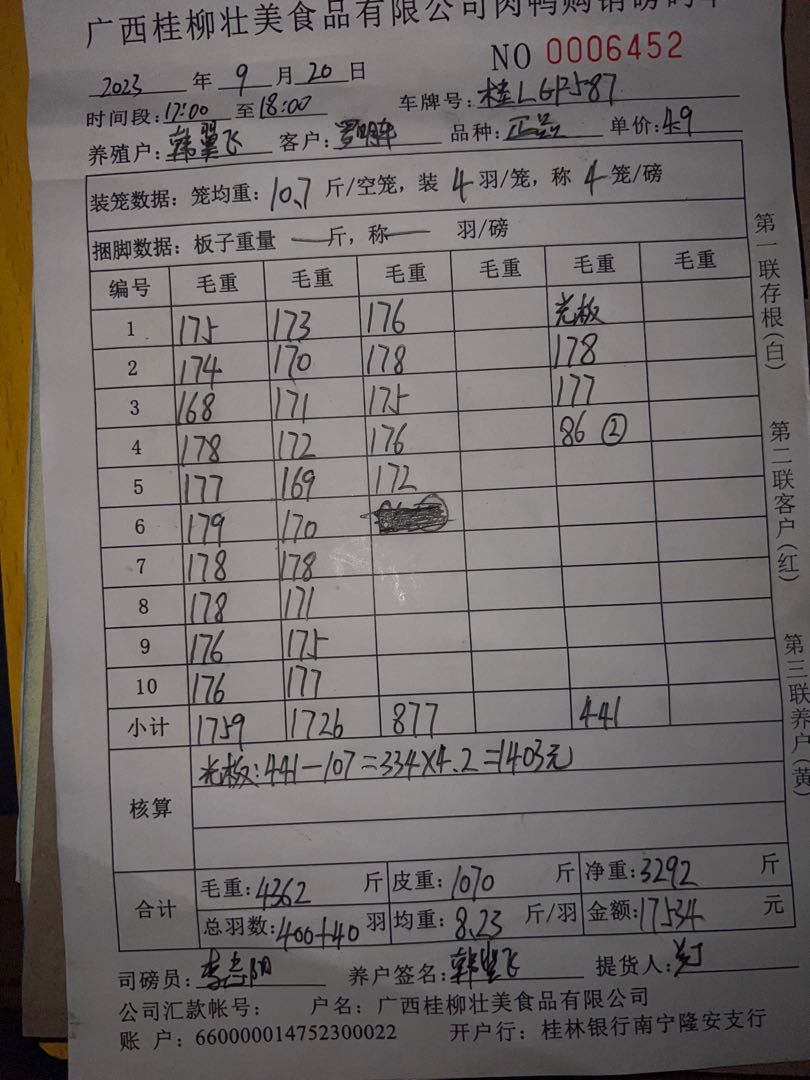 广西桂柳壮美食品有限公司肉鸭购销磅码单
NO 0006452
2023 年 9 月 20 日
时间段:17:00 至18:00 车牌号:桂LGP587
养殖户:韩翼飞 客户: 品种:正品 单价:4.9
装笼数据:笼均重:10.7 斤/空笼,装 4 羽/笼,称 4 笼/磅
捆脚数据:板子重量 — 斤,称 — 羽/磅
编号 毛重 毛重 毛重 毛重 毛重 毛重
1 175 173 176 光板
2 174 170 178 178
3 168 171 175 177
4 178 172 176 86 ②
5 177 169 172
6 179 170
7 178 178
8 178 171
9 176 175
10 176 177
小计 1759 1726 877 441
核算 光板:441-107=334×4.2=1403元
合计 毛重:4362 斤 皮重:1070 斤 净重:3292 斤
总羽数:400+40 羽 均重:8.23 斤/羽 金额:17534 元
司磅员:李志阳 养户签名:韩翼飞 提货人:
公司汇款帐号: 户名:广西桂柳壮美食品有限公司
账 户:660000014752300022 开户行:桂林银行南宁隆安支行
第一联存根(白)
第二联客户(红)
第三联养户(黄)